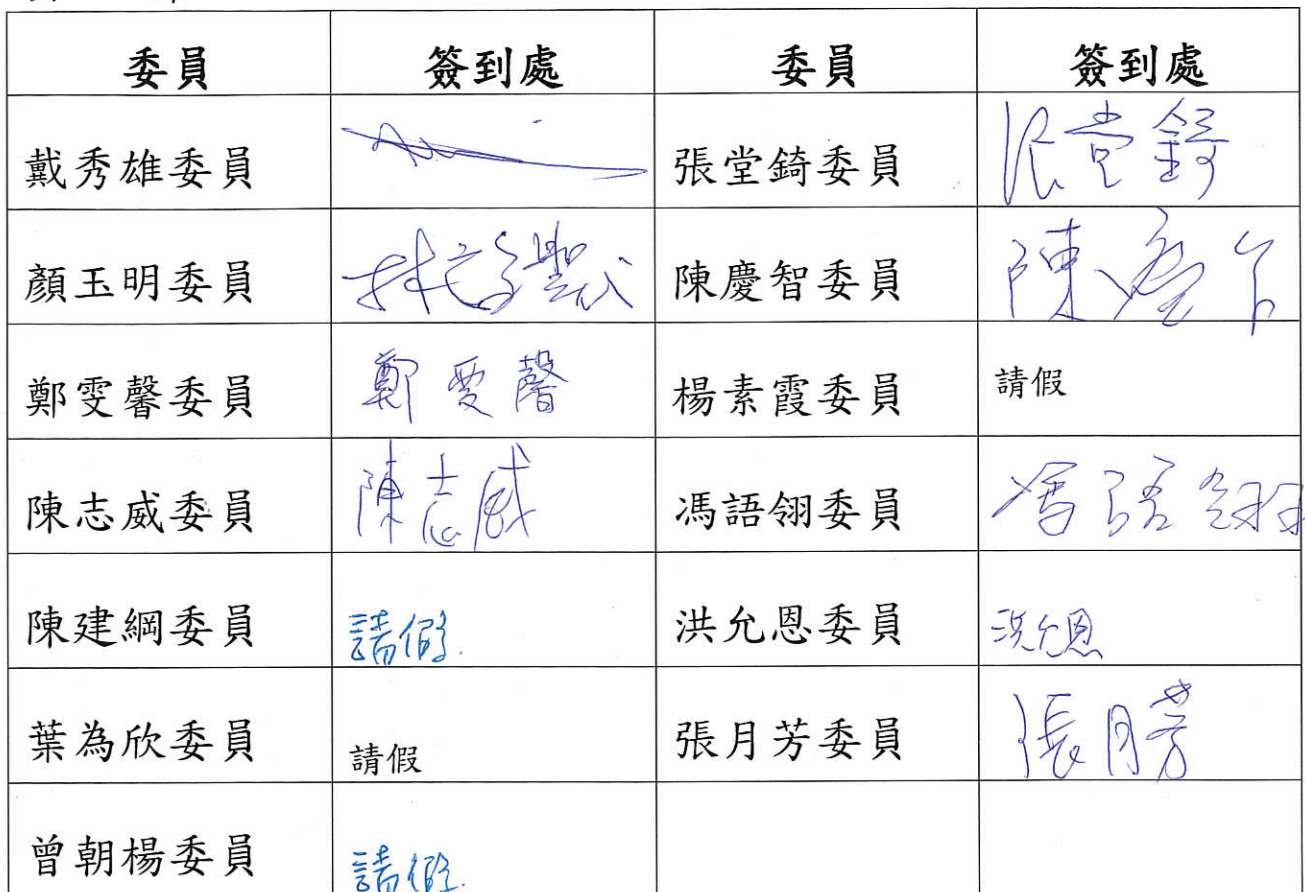 委員 簽到處 委員 簽到處
戴秀雄委員 張堂錡委員 張堂錡
顏玉明委員 陳慶智委員 陳慶智
鄭雯馨委員 鄭雯馨 楊素霞委員 請假
陳志威委員 陳志威 馮語翎委員 馮語翎
陳建綱委員 請假. 洪允恩委員 洪允恩
葉為欣委員 請假 張月芳委員 張月芳
曾朝楊委員 請假.